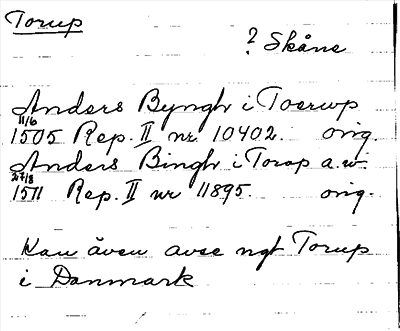 Torup
? Skåne
Anders Byngh i Toerwp
11/6
1505 Rep. II nr 10402. orig.
Anders Bingh i Torop a.w.
27/8
1511 Rep. II nr 11895. orig.
Kan även avse ngt Torup
i Danmark